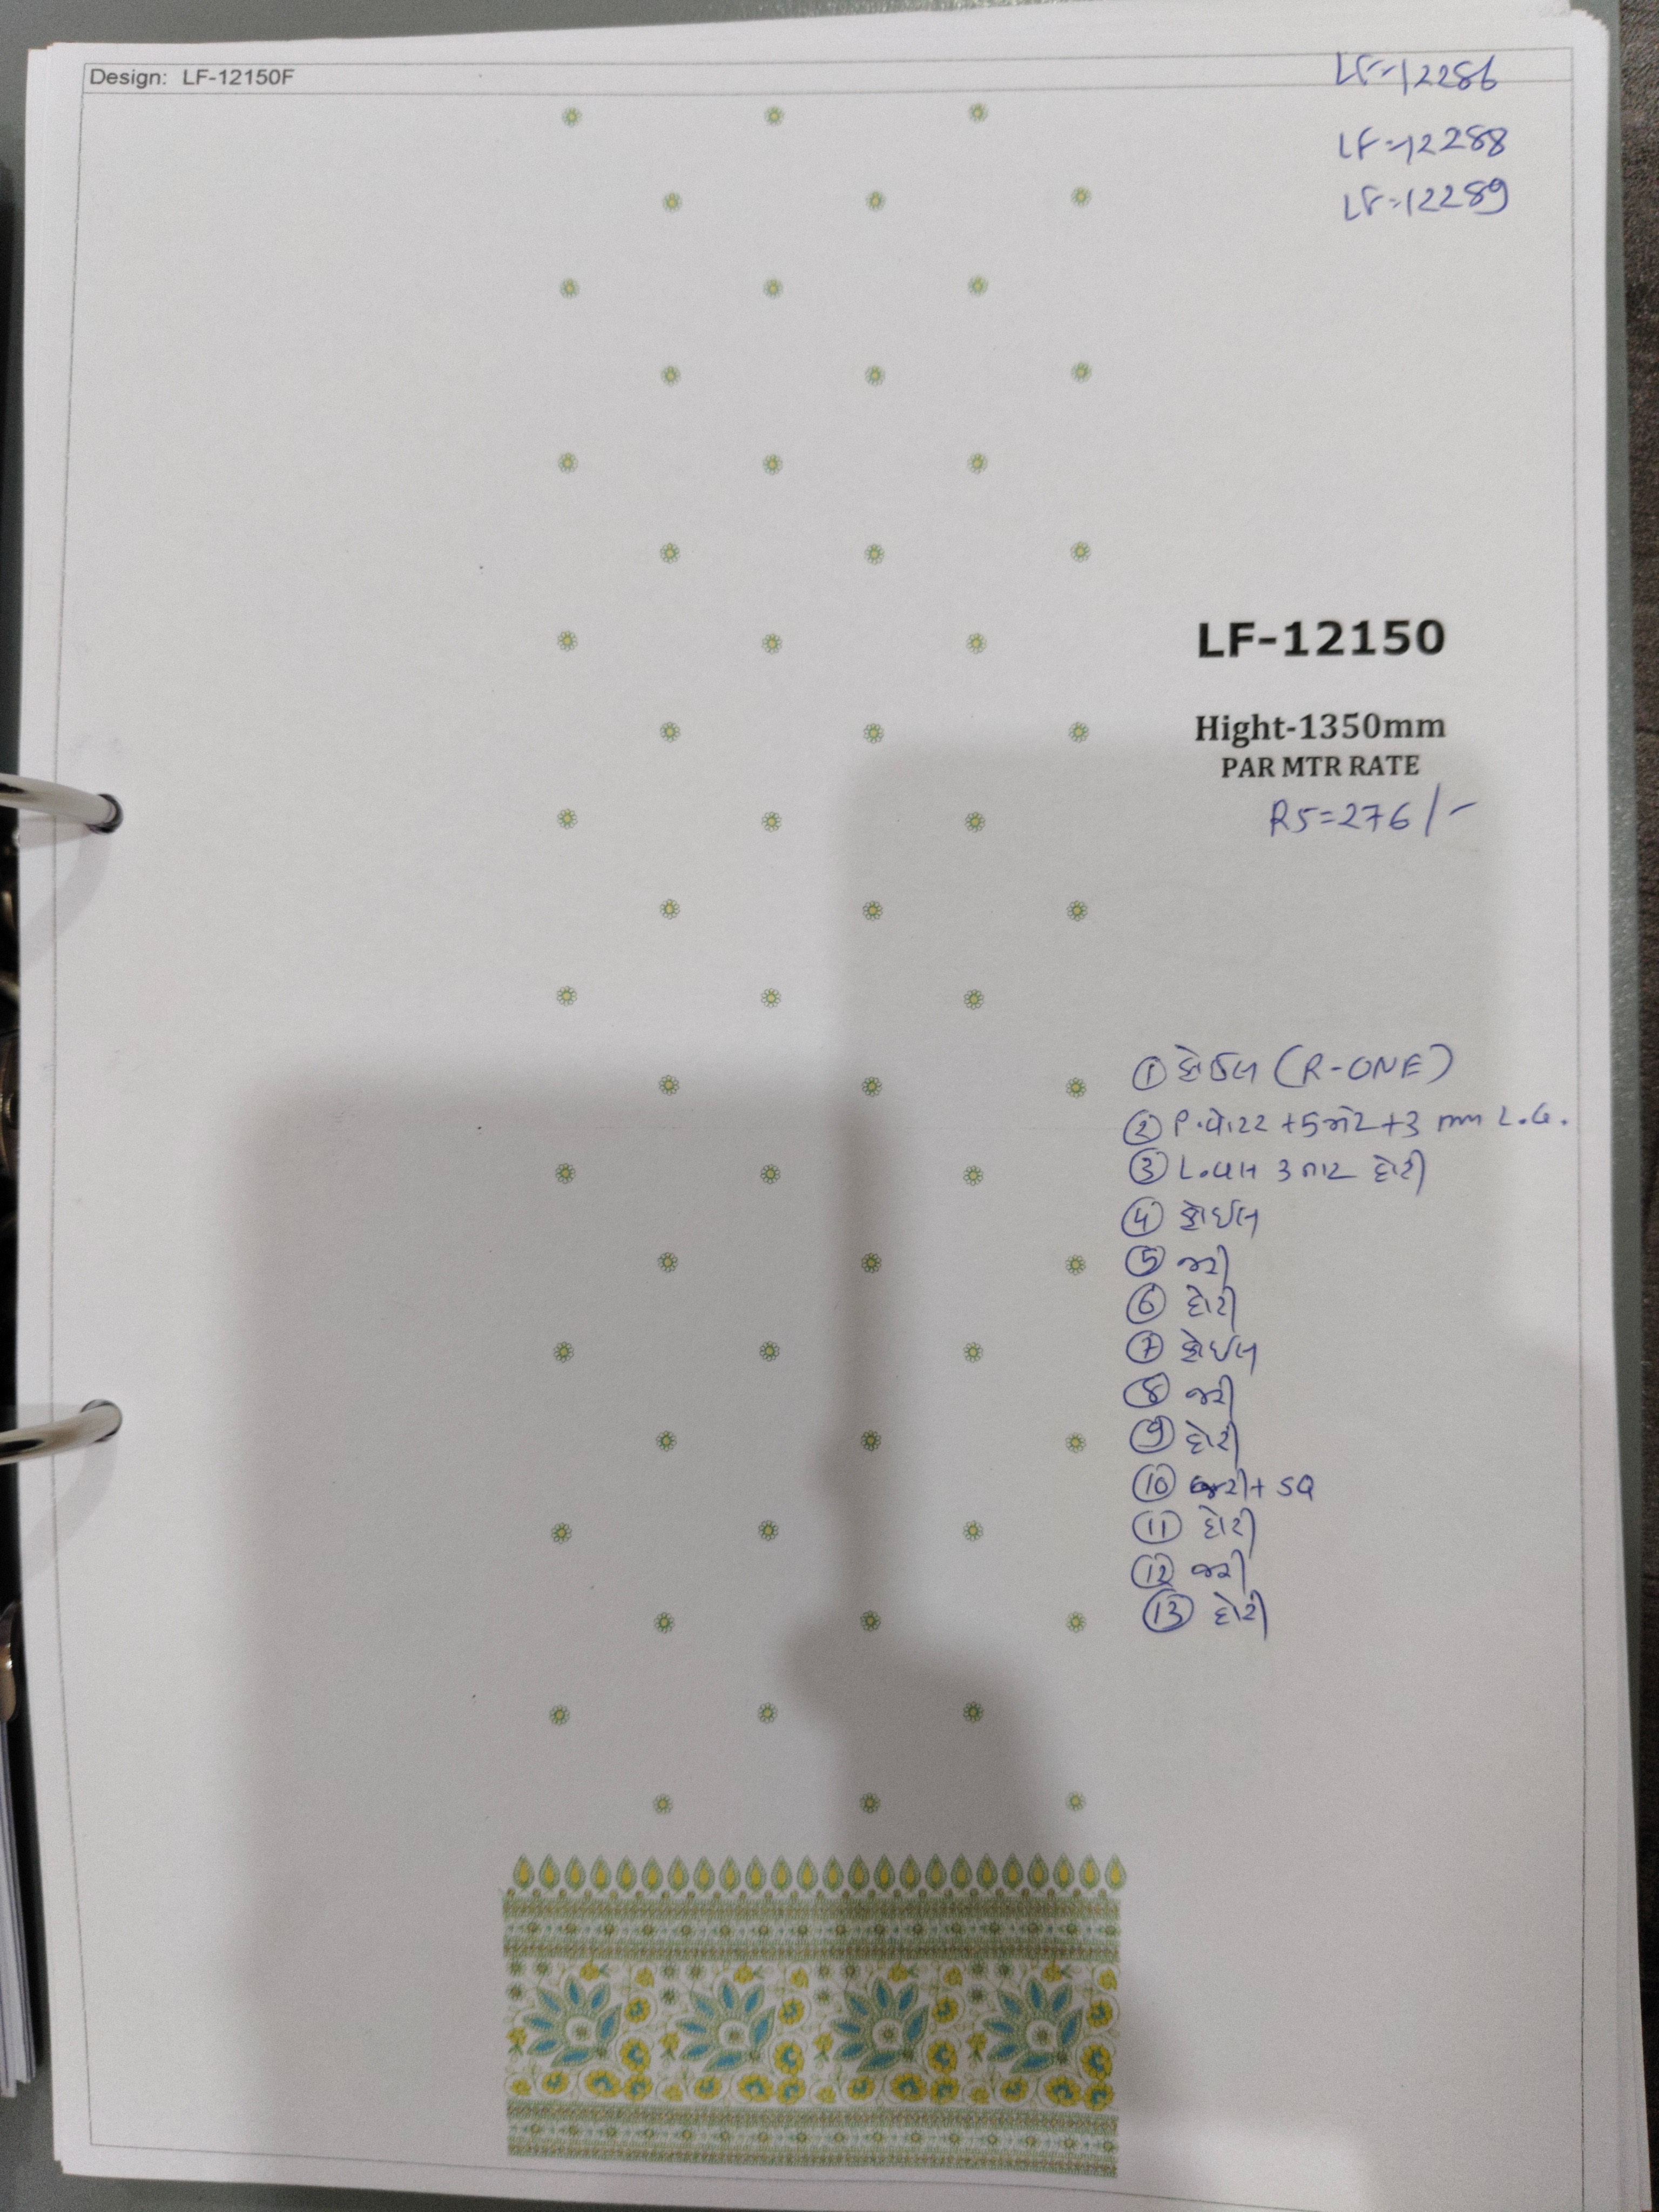 Design: LF-12150F
LF-12286
LF-12288
LF-12289
LF-12150
Hight-1350mm
PAR MTR RATE
RS=276/-
① ફોઈલ (R-ONE)
② P. + 3 mm L.G.
③ 3 તાર દોરી
④ ફોઈલ
⑤ જરી
⑥ દોરી
⑦ ફોઈલ
⑧ જરી
⑨ દોરી
⑩ જરી + SQ
⑪ દોરી
⑫ જરી
⑬ દોરી